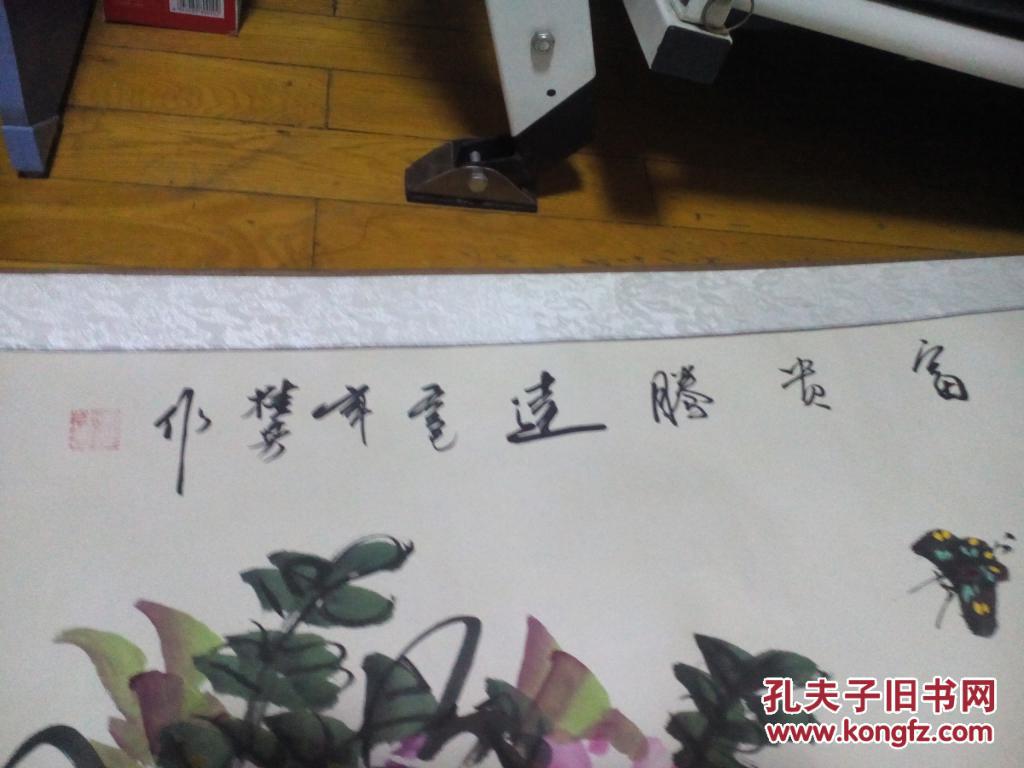 富贵腾达龍年桂英作
孔夫子旧书网
www.kongfz.com